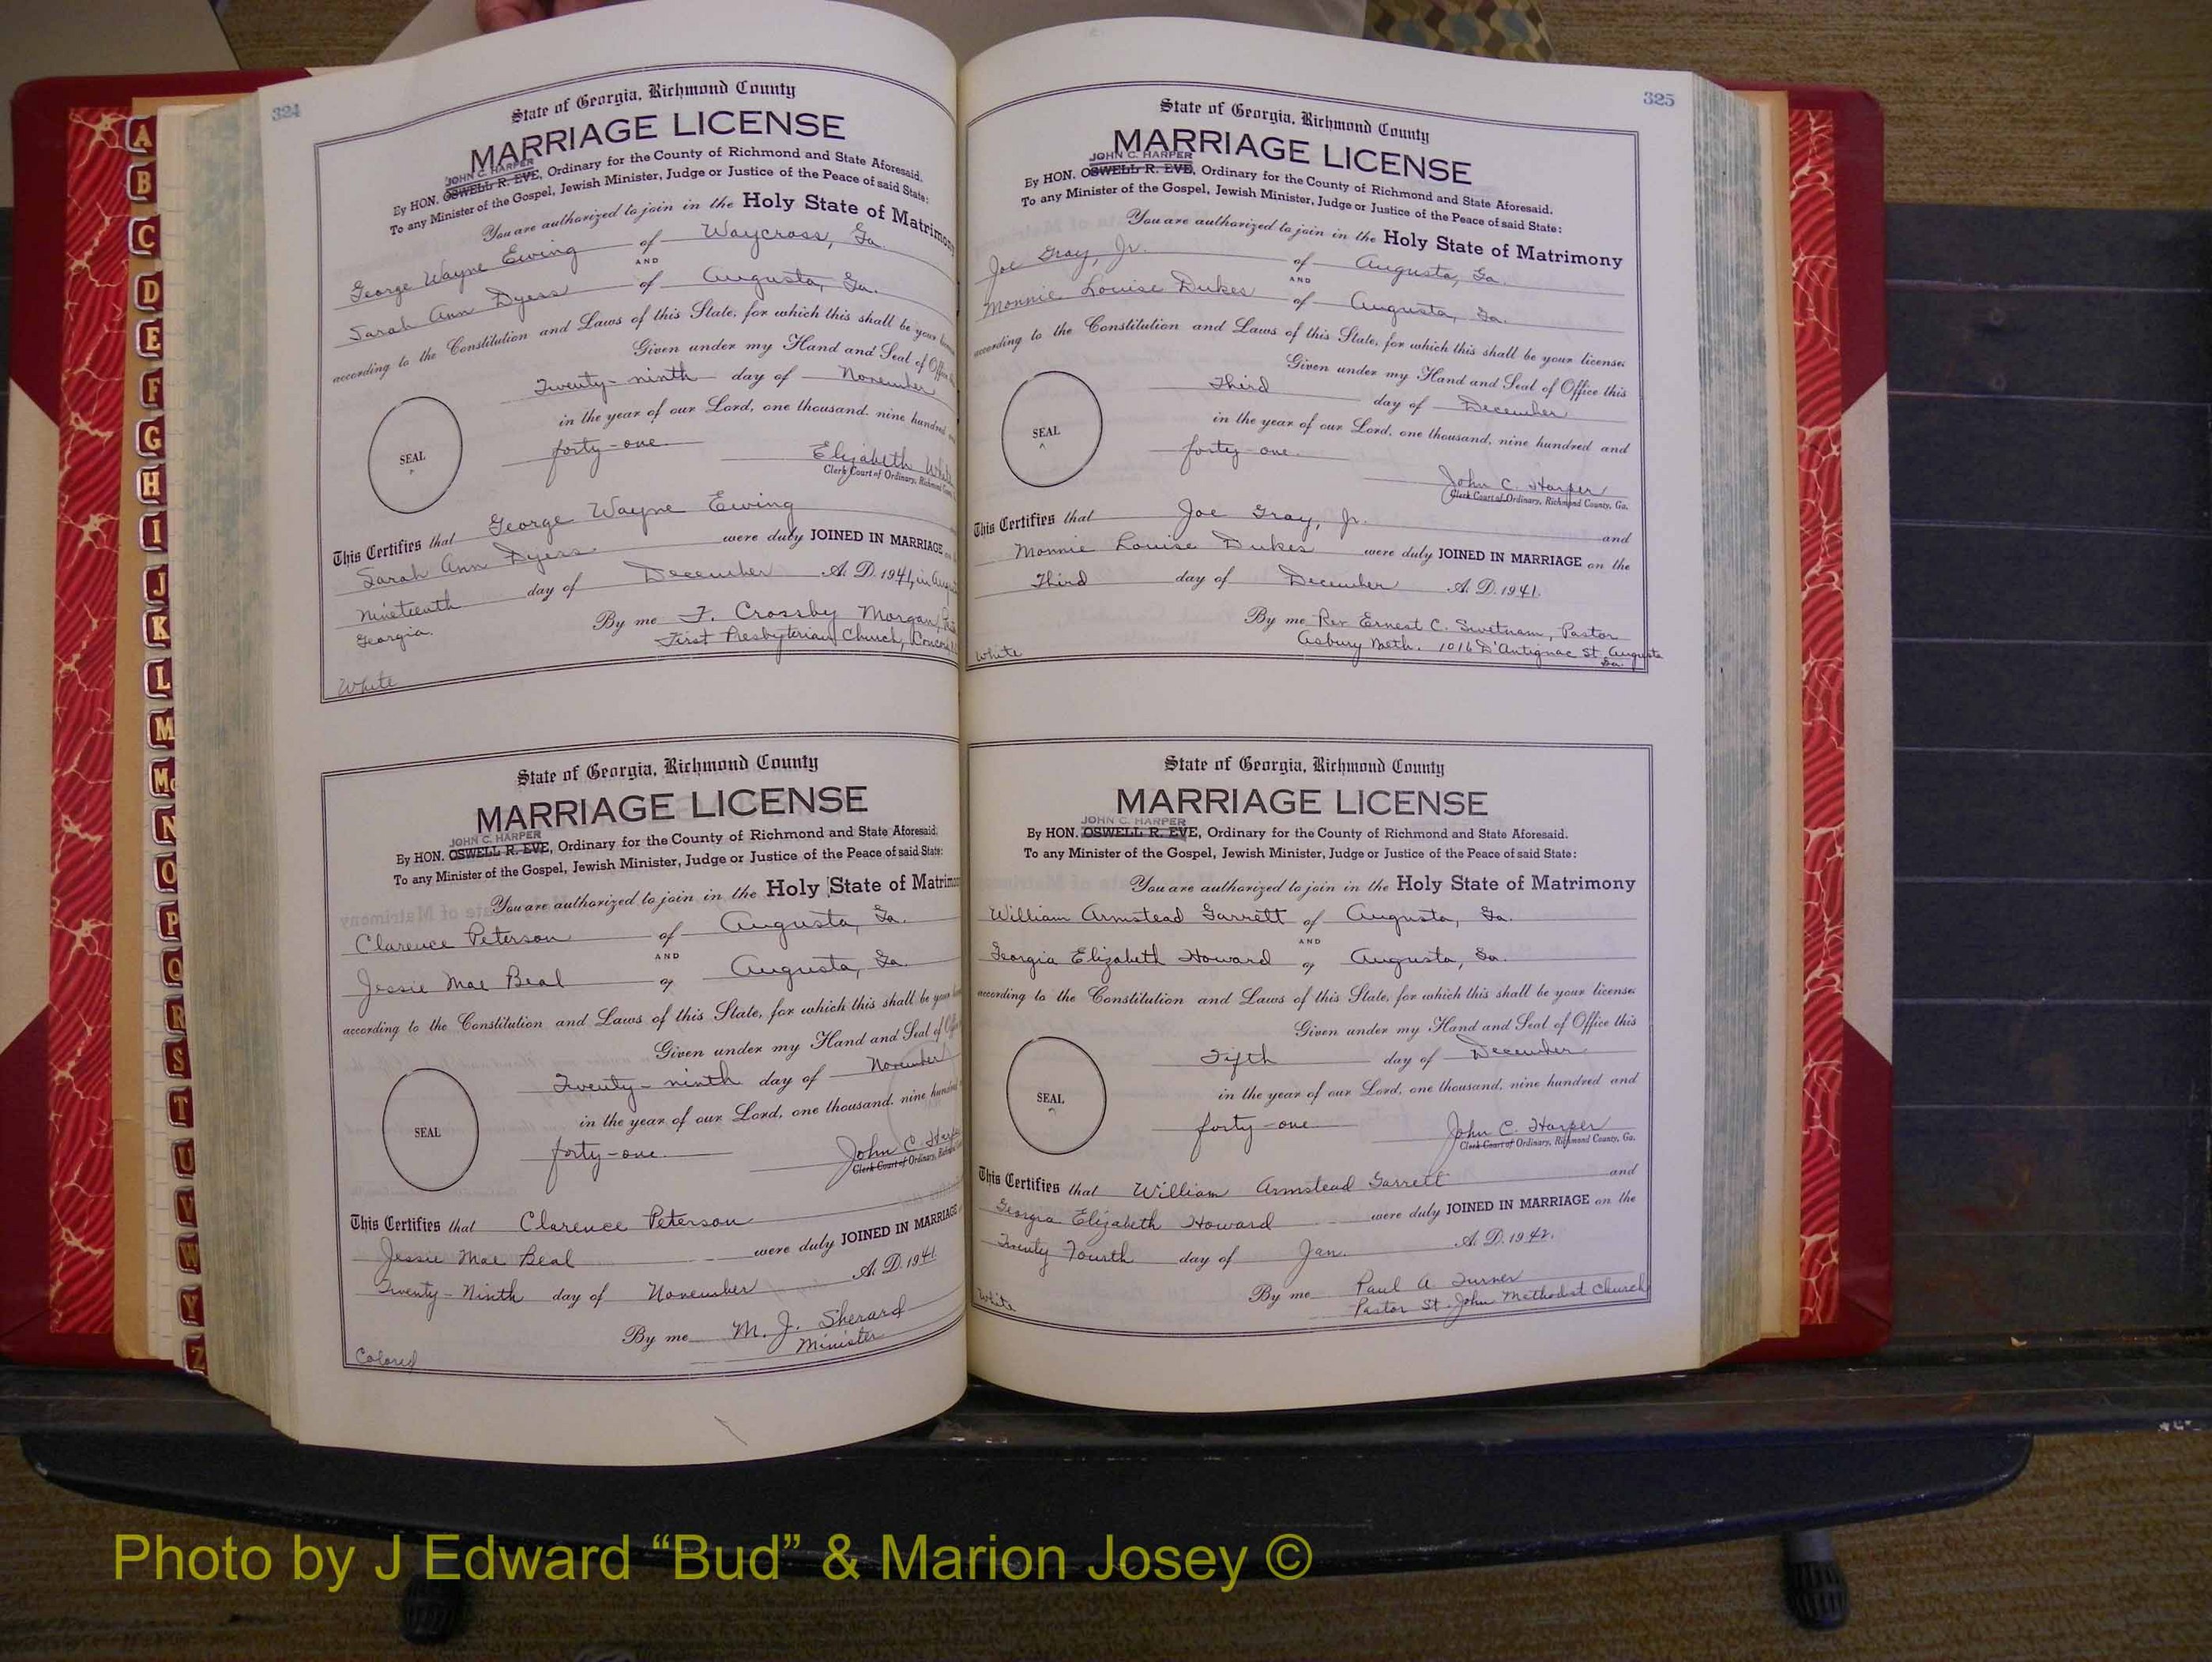 324
State of Georgia, Richmond County
MARRIAGE LICENSE
JOHN C. HARPER
By HON. OSWELL R. EVE, Ordinary for the County of Richmond and State Aforesaid.
To any Minister of the Gospel, Jewish Minister, Judge or Justice of the Peace of said State:
You are authorized to join in the Holy State of Matrimony
George Wayne Ewing of Waycross, Ga.
AND
Sarah Ann Dyess of Augusta, Ga.
according to the Constitution and Laws of this State, for which this shall be your
Given under my Hand and Seal of Office
Twenty-ninth day of November
in the year of our Lord, one thousand, nine hundred
forty-one.
SEAL
Elizabeth
Clerk Court of Ordinary, Richmond
This Certifies that George Wayne Ewing
Sarah Ann Dyess were duly JOINED IN MARRIAGE
Nineteenth day of December A. D. 1941, in
Georgia.
By me F. Crossby Morgan,
First Presbyterian Church,
White
State of Georgia, Richmond County
MARRIAGE LICENSE
JOHN C. HARPER
By HON. OSWELL R. EVE, Ordinary for the County of Richmond and State Aforesaid.
To any Minister of the Gospel, Jewish Minister, Judge or Justice of the Peace of said State:
You are authorized to join in the Holy State of
Clarence Peterson of Augusta, Ga.
AND
Jessie Mae Beal of Augusta, Ga.
according to the Constitution and Laws of this State, for which this shall be your
Given under my Hand and Seal of
Twenty-ninth day of November
in the year of our Lord, one thousand, nine hundred
forty-one.
SEAL
John C.
Clerk Court of Ordinary,
This Certifies that Clarence Peterson
Jessie Mae Beal were duly JOINED IN MARRIAGE
Twenty-Ninth day of November A. D. 1941.
By me M. J. Sherard
Minister
Colored
325
State of Georgia, Richmond County
MARRIAGE LICENSE
JOHN C. HARPER
By HON. OSWELL R. EVE, Ordinary for the County of Richmond and State Aforesaid.
To any Minister of the Gospel, Jewish Minister, Judge or Justice of the Peace of said State:
You are authorized to join in the Holy State of Matrimony
Joe Gray, Jr. of Augusta, Ga.
AND
Monnie Louise Dukes of Augusta, Ga.
according to the Constitution and Laws of this State, for which this shall be your license:
Given under my Hand and Seal of Office this
Third day of December
in the year of our Lord, one thousand, nine hundred and
forty-one.
SEAL
John C. Harper
Clerk Court of Ordinary, Richmond County, Ga.
This Certifies that Joe Gray, Jr. and
Monnie Louise Dukes were duly JOINED IN MARRIAGE on the
Third day of December A. D. 1941.
By me Rev Ernest C. Swetnam, Pastor
Asbury Meth. 1016 D'Antignac St. Augusta
Ga.
White
State of Georgia, Richmond County
MARRIAGE LICENSE
JOHN C. HARPER
By HON. OSWELL R. EVE, Ordinary for the County of Richmond and State Aforesaid.
To any Minister of the Gospel, Jewish Minister, Judge or Justice of the Peace of said State:
You are authorized to join in the Holy State of Matrimony
William Armstead Garrett of Augusta, Ga.
AND
Georgia Elizabeth Howard of Augusta, Ga.
according to the Constitution and Laws of this State, for which this shall be your license:
Given under my Hand and Seal of Office this
Fifth day of December
in the year of our Lord, one thousand, nine hundred and
forty-one.
SEAL
John C. Harper
Clerk Court of Ordinary, Richmond County, Ga.
This Certifies that William Armstead Garrett and
Georgia Elizabeth Howard were duly JOINED IN MARRIAGE on the
Twenty Fourth day of Jan. A. D. 1942.
By me Paul A Turner
Pastor St. John Methodist Church
White
A
B
C
D
E
F
G
H
I
J
K
L
M
Mc
N
O
P
Q
R
S
T
U
V
W
Y
Z
Photo by J Edward “Bud” & Marion Josey ©